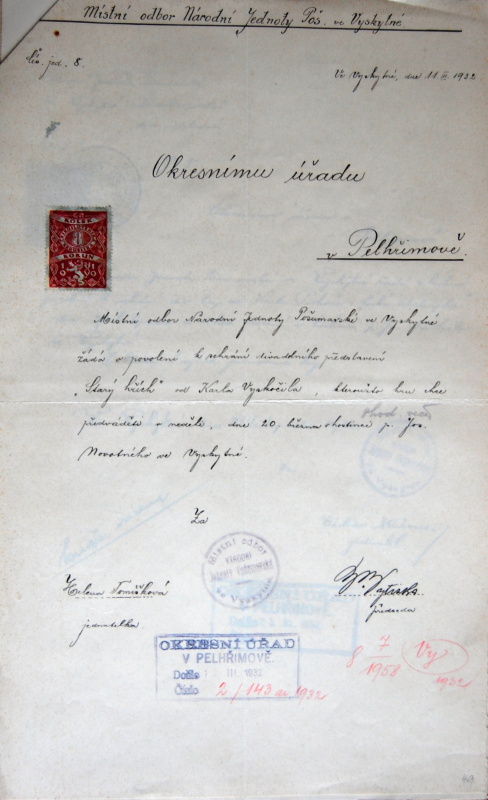 Místní odbor Národní Jednoty Poš. ve Vyskytné
Čís. jed. 8.
Ve Vyskytné, dne 11. III. 1932
Okresnímu úřadu
v Pelhřimově.
KOLEK
8
KORUN
Místní odbor Národní Jednoty Pošumavské ve Vyskytné
žádá o povolení k sehrání divadelního představení
"Starý hřích" od Karla Vyskočila, kteroužto hru chce
předváděti v neděli, dne 20. března v hostinci p. Jos.
Novotného ve Vyskytné.
Za
Místní odbor
NÁRODNÍ
JEDNOTY POŠUMAVSKÉ
ve Vyskytné
Helena Tomášková
jednatelka
předseda
OKRESNÍ ÚŘAD
V PELHŘIMOVĚ.
Došlo III. 1932
Číslo 2/143 ai 1932
8 7/1958 Vy
1932